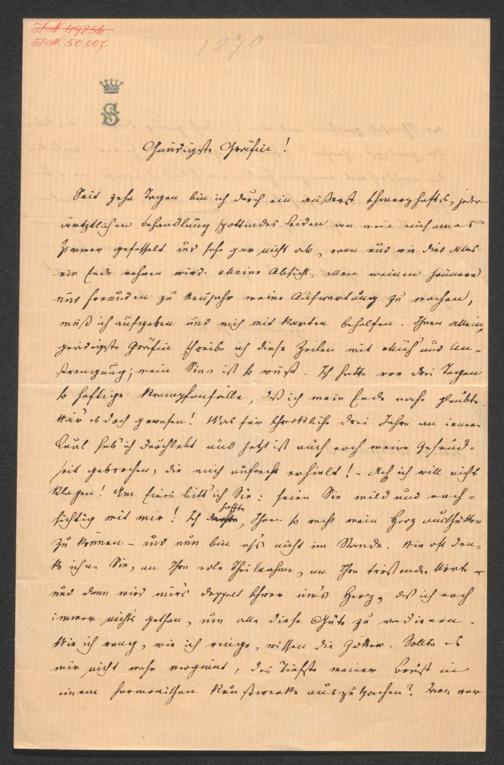 I.N. 49856
I.N. 50.007
1870
S
Gnädigste Gräfin!
Seit zehn Tagen bin ich durch ein äußerst schmerzhaftes, jeder
ärztlichen Behandlung spottendes Leiden an mein einsames
Zimmer gefesselt und sehe gar nicht ab, wann und wie dies alles
ein Ende nehmen wird. Meine Absicht, allen meinen Gönnern
und Freunden zu Neujahr meine Aufwartung zu machen,
muß ich aufgeben und mich mit Karten behelfen. Ihnen allein,
gnädigste Gräfin schreibe ich diese Zeilen mit Mühe und An-
strengung; mein Sinn ist so wüst. Ich hatte vor drei Tagen
so heftige Krampfanfälle, daß ich mein Ende nahe glaubte.
Wär' es doch gewesen! Was für schreckliche drei Jahre an innerer
Qual hab' ich durchlebt und jetzt ist auch noch meine Gesund-
heit gebrochen, die mich aufrecht erhielt! – Doch ich will nicht
klagen! Um Eines bitt' ich Sie: seien Sie mild und nach-
sichtig mit mir! Ich hoffte, Ihnen so recht mein Herz ausschütten
zu können – und nun bin ich's nicht im Stande. Wie oft den-
ke ich an Sie, an Ihre edle Theilnahme, an Ihre tröstenden Worte –
und dann wird mir's doppelt schwer um's Herz, daß ich noch
immer nichts gethan, um alle diese Güte zu verdienen.
Wie ich rang, wie ich ringe, wissen die Götter. Sollte es
mir nicht mehr vergönnt, das Tiefste meiner Brust in
einem harmonischen Kunstwerke auszusprechen?